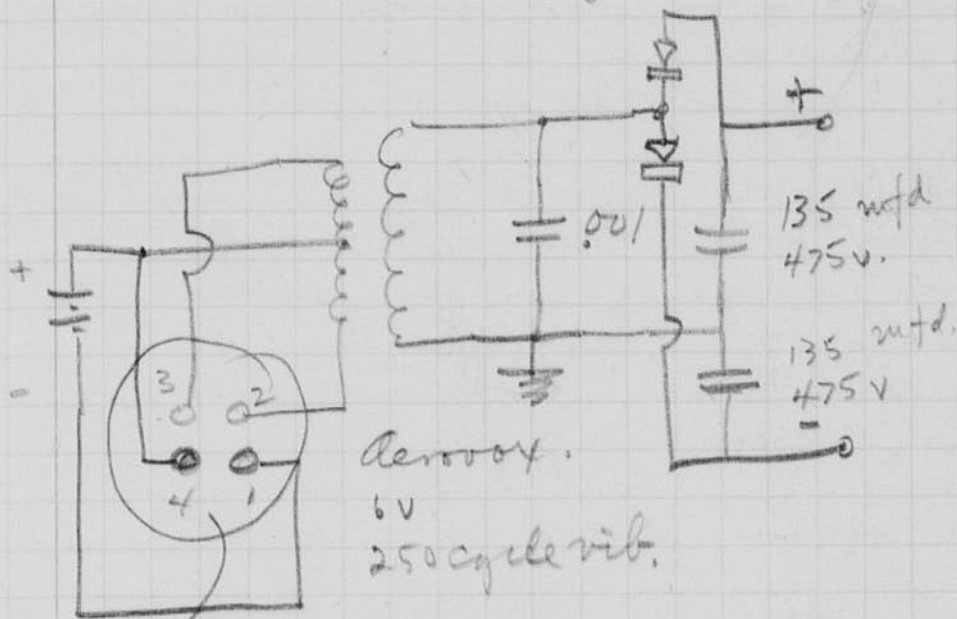 +
.001
135 mfd
475 v.
+
-
3
2
4
1
135 mfd.
475 V
-
Aerovox.
6V
250 cycle vib.